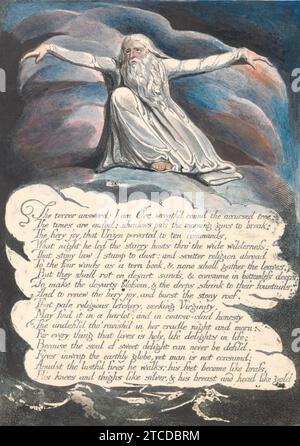 The terror answerd: I am Orc, wreath'd round the accursed tree:
The times are ended; shadows pass the morning gins to break;
The fiery joy, that Urizen perverted to ten commands,
What night he led the starry hosts thro' the wide wilderness:
That stony law I stamp to dust: and scatter religion abroad
To the four winds as a torn book, & none shall gather the leaves;
But they shall rot on desart sands, & consume in bottomless deeps;
To make the desarts blossom, & the deeps shrink to their fountains,
And to renew the fiery joy, and burst the stony roof.
That pale religious letchery, seeking Virginity,
May find it in a harlot, and in coarse-clad honesty
The undefil'd tho' ravish'd in her cradle night and morn:
For every thing that lives is holy, life delights in life;
Because the soul of sweet delight can never be defil'd.
Fires inwrap the earthly globe, yet man is not consumd;
Amidst the lustful fires he walks: his feet become like brass,
His knees and thighs like silver, & his breast and head like gold.
alamy
alamy
Image ID: 2TCDBRM
www.alamy.com